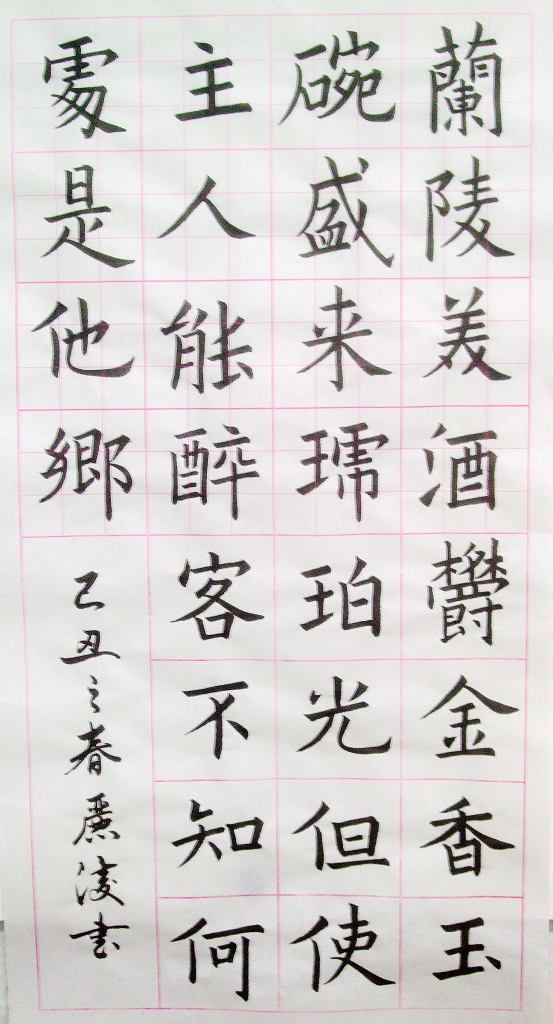 蘭陵美酒鬱金香玉
碗盛来琥珀光但使
主人能醉客不知何
處是他鄉
己丑之春书